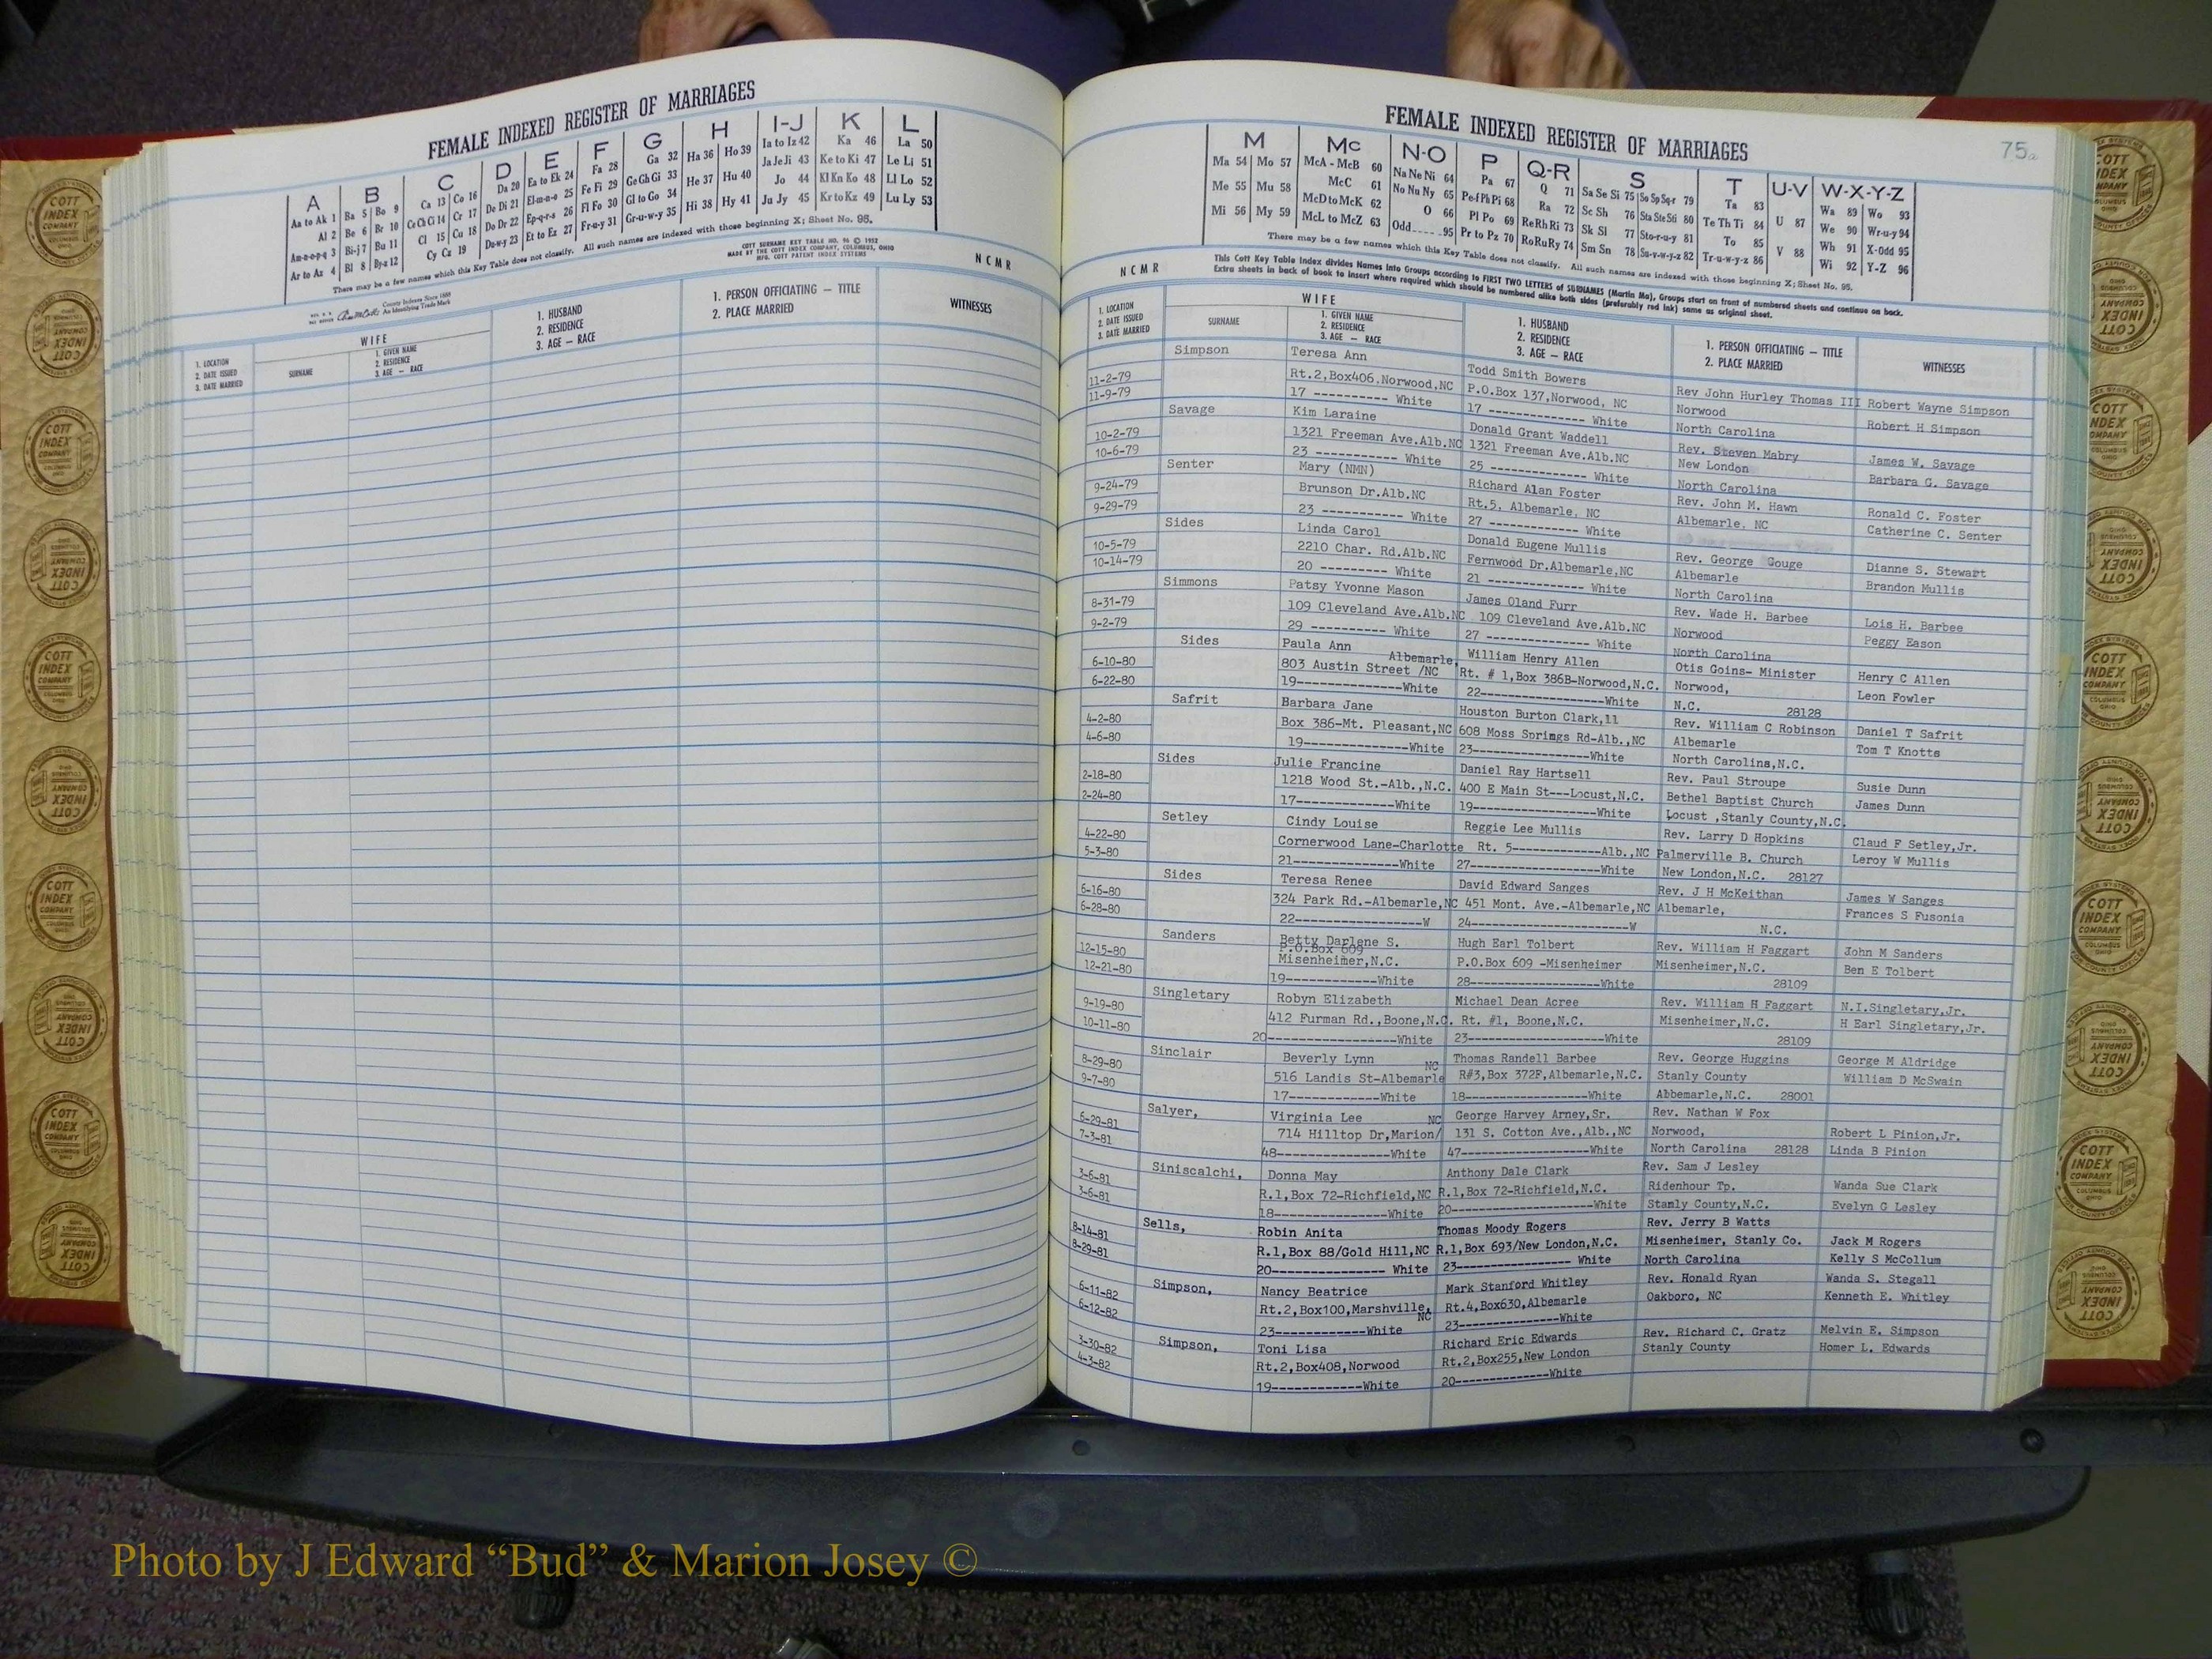 FEMALE INDEXED REGISTER OF MARRIAGES
A B C D E F G H I-J K L
Aa to Ak 1 Ba 5 Bo 9 Ca 13 Co 16 Da 20 Ea to Ek 24 Fa 28 Ga 32 Ha 36 Ho 39 Ia to Iz 42 Ka 46 La 50
Al 2 Be 6 Br 10 Ce Ch Ci 14 Cr 17 De Di 21 El-m-n-o 25 Fe Fi 29 Ge Gh Gi 33 He 37 Hu 40 Ja Je Ji 43 Ke to Ki 47 Le Li 51
Am-n-o-p-q 3 Bi-j 7 Bu 11 Cl 15 Cu 18 Do Dr 22 Ep-q-r-s 26 Fl Fo 30 Gl to Go 34 Hi 38 Hy 41 Jo 44 Kl Kn Ko 48 Ll Lo 52
Ar to Az 4 Bl 8 By-z 12 Cy Cz 19 Du-w-y 23 Et to Ez 27 Fr-u-y 31 Gr-u-w-y 35 Ju Jy 45 Kr to Kz 49 Lu Ly 53
There may be a few names which this Key Table does not classify. All such names are indexed with those beginning X; Sheet No. 95.
COTT SURNAME KEY TABLE NO. 96 © 1952
MADE BY THE COTT INDEX COMPANY, COLUMBUS, OHIO
MFG. COTT PATENT INDEX SYSTEMS
County Indexes Since 1888
An Identifying Trade Mark
NCMR
1. LOCATION
2. DATE ISSUED
3. DATE MARRIED
WIFE
SURNAME
1. GIVEN NAME
2. RESIDENCE
3. AGE — RACE
1. HUSBAND
2. RESIDENCE
3. AGE — RACE
1. PERSON OFFICIATING — TITLE
2. PLACE MARRIED
WITNESSES
FEMALE INDEXED REGISTER OF MARRIAGES
75a
M Mc N-O P Q-R S T U-V W-X-Y-Z
Ma 54 Mo 57 McA - McB 60 Na Ne Ni 64 Pa 67 Q 71 Sa Se Si 75 So Sp Sq-r 79 Ta 83 U 87 Wa 89 Wo 93
Me 55 Mu 58 McC 61 No Nu Ny 65 Pe-f Ph Pi 68 Ra 72 Sc Sh 76 Sta Ste Sti 80 Te Th Ti 84 We 90 Wr-u-y 94
Mi 56 My 59 McD to McK 62 O 66 Pl Po 69 Re Rh Ri 73 Sk Sl 77 Sto-r-u-y 81 To 85 V 88 Wh 91 X-Odd 95
McL to McZ 63 Odd 95 Pr to Pz 70 Ro Ru Ry 74 Sm Sn 78 Su-v-w-y-z 82 Tr-u-w-y-z 86 Wi 92 Y-Z 96
There may be a few names which this Key Table does not classify. All such names are indexed with those beginning X; Sheet No. 95.
This Cott Key Table Index divides Names into Groups according to FIRST TWO LETTERS of SURNAMES (Martin Ma), Groups start on front of numbered sheets and continue on back.
Extra sheets in back of book to insert where required which should be numbered alike both sides (preferably red ink) same as original sheet.
NCMR
1. LOCATION
2. DATE ISSUED
3. DATE MARRIED
WIFE
SURNAME
1. GIVEN NAME
2. RESIDENCE
3. AGE — RACE
1. HUSBAND
2. RESIDENCE
3. AGE — RACE
1. PERSON OFFICIATING — TITLE
2. PLACE MARRIED
WITNESSES
Simpson Teresa Ann Todd Smith Bowers Rev John Hurley Thomas III Robert Wayne Simpson
11-2-79 Rt.2,Box406.Norwood,NC P.O.Box 137,Norwood, NC Norwood Robert H Simpson
11-9-79 17 ---------- White 17 ------------- White North Carolina
Savage Kim Laraine Donald Grant Waddell Rev. Steven Mabry James W. Savage
10-2-79 1321 Freeman Ave.Alb.NC 1321 Freeman Ave.Alb.NC New London Barbara G. Savage
10-6-79 23 ----------- White 25 ------------- White North Carolina
Senter Mary (NMN) Richard Alan Foster Rev. John M. Hawn Ronald C. Foster
9-24-79 Brunson Dr.Alb.NC Rt.5, Albemarle, NC Albemarle, NC Catherine C. Senter
9-29-79 23 ----------- White 27 ------------ White
Sides Linda Carol Donald Eugene Mullis Rev. George Gouge Dianne S. Stewart
10-5-79 2210 Char. Rd.Alb.NC Fernwood Dr.Albemarle,NC Albemarle Brandon Mullis
10-14-79 20 --------- White 21 ------------- White North Carolina
Simmons Patsy Yvonne Mason James Oland Furr Rev. Wade H. Barbee Lois H. Barbee
8-31-79 109 Cleveland Ave.Alb.NC 109 Cleveland Ave.Alb.NC Norwood Peggy Eason
9-2-79 29 ---------- White 27 -------------- White North Carolina
Sides Paula Ann William Henry Allen Otis Goins- Minister Henry C Allen
6-10-80 803 Austin Street /NC Albemarle, Rt. # 1,Box 386B-Norwood,N.C. Norwood, Leon Fowler
6-22-80 19--------------White 22---------------White N.C. 28128
Safrit Barbara Jane Houston Burton Clark,11 Rev. William C Robinson Daniel T Safrit
4-2-80 Box 386-Mt. Pleasant,NC 608 Moss Springs Rd-Alb.,NC Albemarle Tom T Knotts
4-6-80 19---------------White 23----------------White North Carolina,N.C.
Sides Julie Francine Daniel Ray Hartsell Rev. Paul Stroupe Susie Dunn
2-18-80 1218 Wood St.-Alb.,N.C. 400 E Main St---Locust,N.C. Bethel Baptist Church James Dunn
2-24-80 17-------------White 19------------------White Locust ,Stanly County,N.C.
Setley Cindy Louise Reggie Lee Mullis Rev. Larry D Hopkins Claud F Setley,Jr.
4-22-80 Cornerwood Lane-Charlotte Rt. 5-------------Alb.,NC Palmerville B. Church Leroy W Mullis
5-3-80 21--------------White 27------------------White New London,N.C. 28127
Sides Teresa Renee David Edward Sanges Rev. J H McKeithan James W Sanges
6-16-80 324 Park Rd.-Albemarle,NC 451 Mont. Ave.-Albemarle,NC Albemarle, Frances S Fusonia
6-28-80 22-----------------W 24---------------------W N.C.
Sanders Betty Darlene S. Hugh Earl Tolbert Rev. William H Faggart John M Sanders
12-15-80 P.O.Box 609 Misenheimer,N.C. P.O.Box 609 -Misenheimer Misenheimer,N.C. Ben E Tolbert
12-21-80 19---------------White 28--------------------White 28109
Singletary Robyn Elizabeth Michael Dean Acree Rev. William H Faggart N.I.Singletary,Jr.
9-19-80 412 Furman Rd.,Boone,N.C. Rt. #1, Boone,N.C. Misenheimer,N.C. H Earl Singletary,Jr.
10-11-80 20-----------------White 23---------------------White 28109
Sinclair Beverly Lynn Thomas Randell Barbee Rev. George Huggins George M Aldridge
8-29-80 516 Landis St-Albemarle NC R#3,Box 372F,Albemarle,N.C. Stanly County William D McSwain
9-7-80 17-------------White 18-------------------White Abbemarle,N.C. 28001
Salyer, Virginia Lee George Harvey Arney,Sr. Rev. Nathan W Fox
6-29-81 714 Hilltop Dr,Marion/ NC 131 S. Cotton Ave.,Alb.,NC Norwood, Robert L Pinion,Jr.
7-3-81 48-----------------White 47-------------------White North Carolina 28128 Linda B Pinion
Siniscalchi, Donna May Anthony Dale Clark Rev. Sam J Lesley
3-6-81 R.1,Box 72-Richfield,NC R.1,Box 72-Richfield,N.C. Ridenhour Tp. Wanda Sue Clark
3-6-81 18----------------White 20---------------------White Stamly County,N.C. Evelyn G Lesley
Sells, Robin Anita Thomas Moody Rogers Rev. Jerry B Watts
8-14-81 R.1,Box 88/Gold Hill,NC R.1,Box 693/New London,N.C. Misenheimer, Stanly Co. Jack M Rogers
8-29-81 20---------------- White 23----------------- White North Carolina Kelly S McCollum
Simpson, Nancy Beatrice Mark Stanford Whitley Rev. Ronald Ryan Wanda S. Stegall
6-11-82 Rt.2,Box100,Marshville, NC Rt.4,Box630,Albemarle Oakboro, NC Kenneth E. Whitley
6-12-82 23-------------White 23---------------White
Simpson, Toni Lisa Richard Eric Edwards Rev. Richard C. Gratz Melvin E. Simpson
3-30-82 Rt.2,Box408,Norwood Rt.2,Box255,New London Stanly County Homer L. Edwards
4-3-82 19-------------White 20--------------White
Photo by J Edward “Bud” & Marion Josey ©